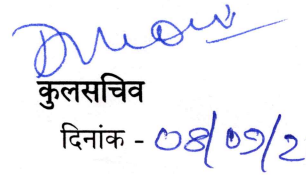 कुलसचिव
दिनांक - 08/09/2